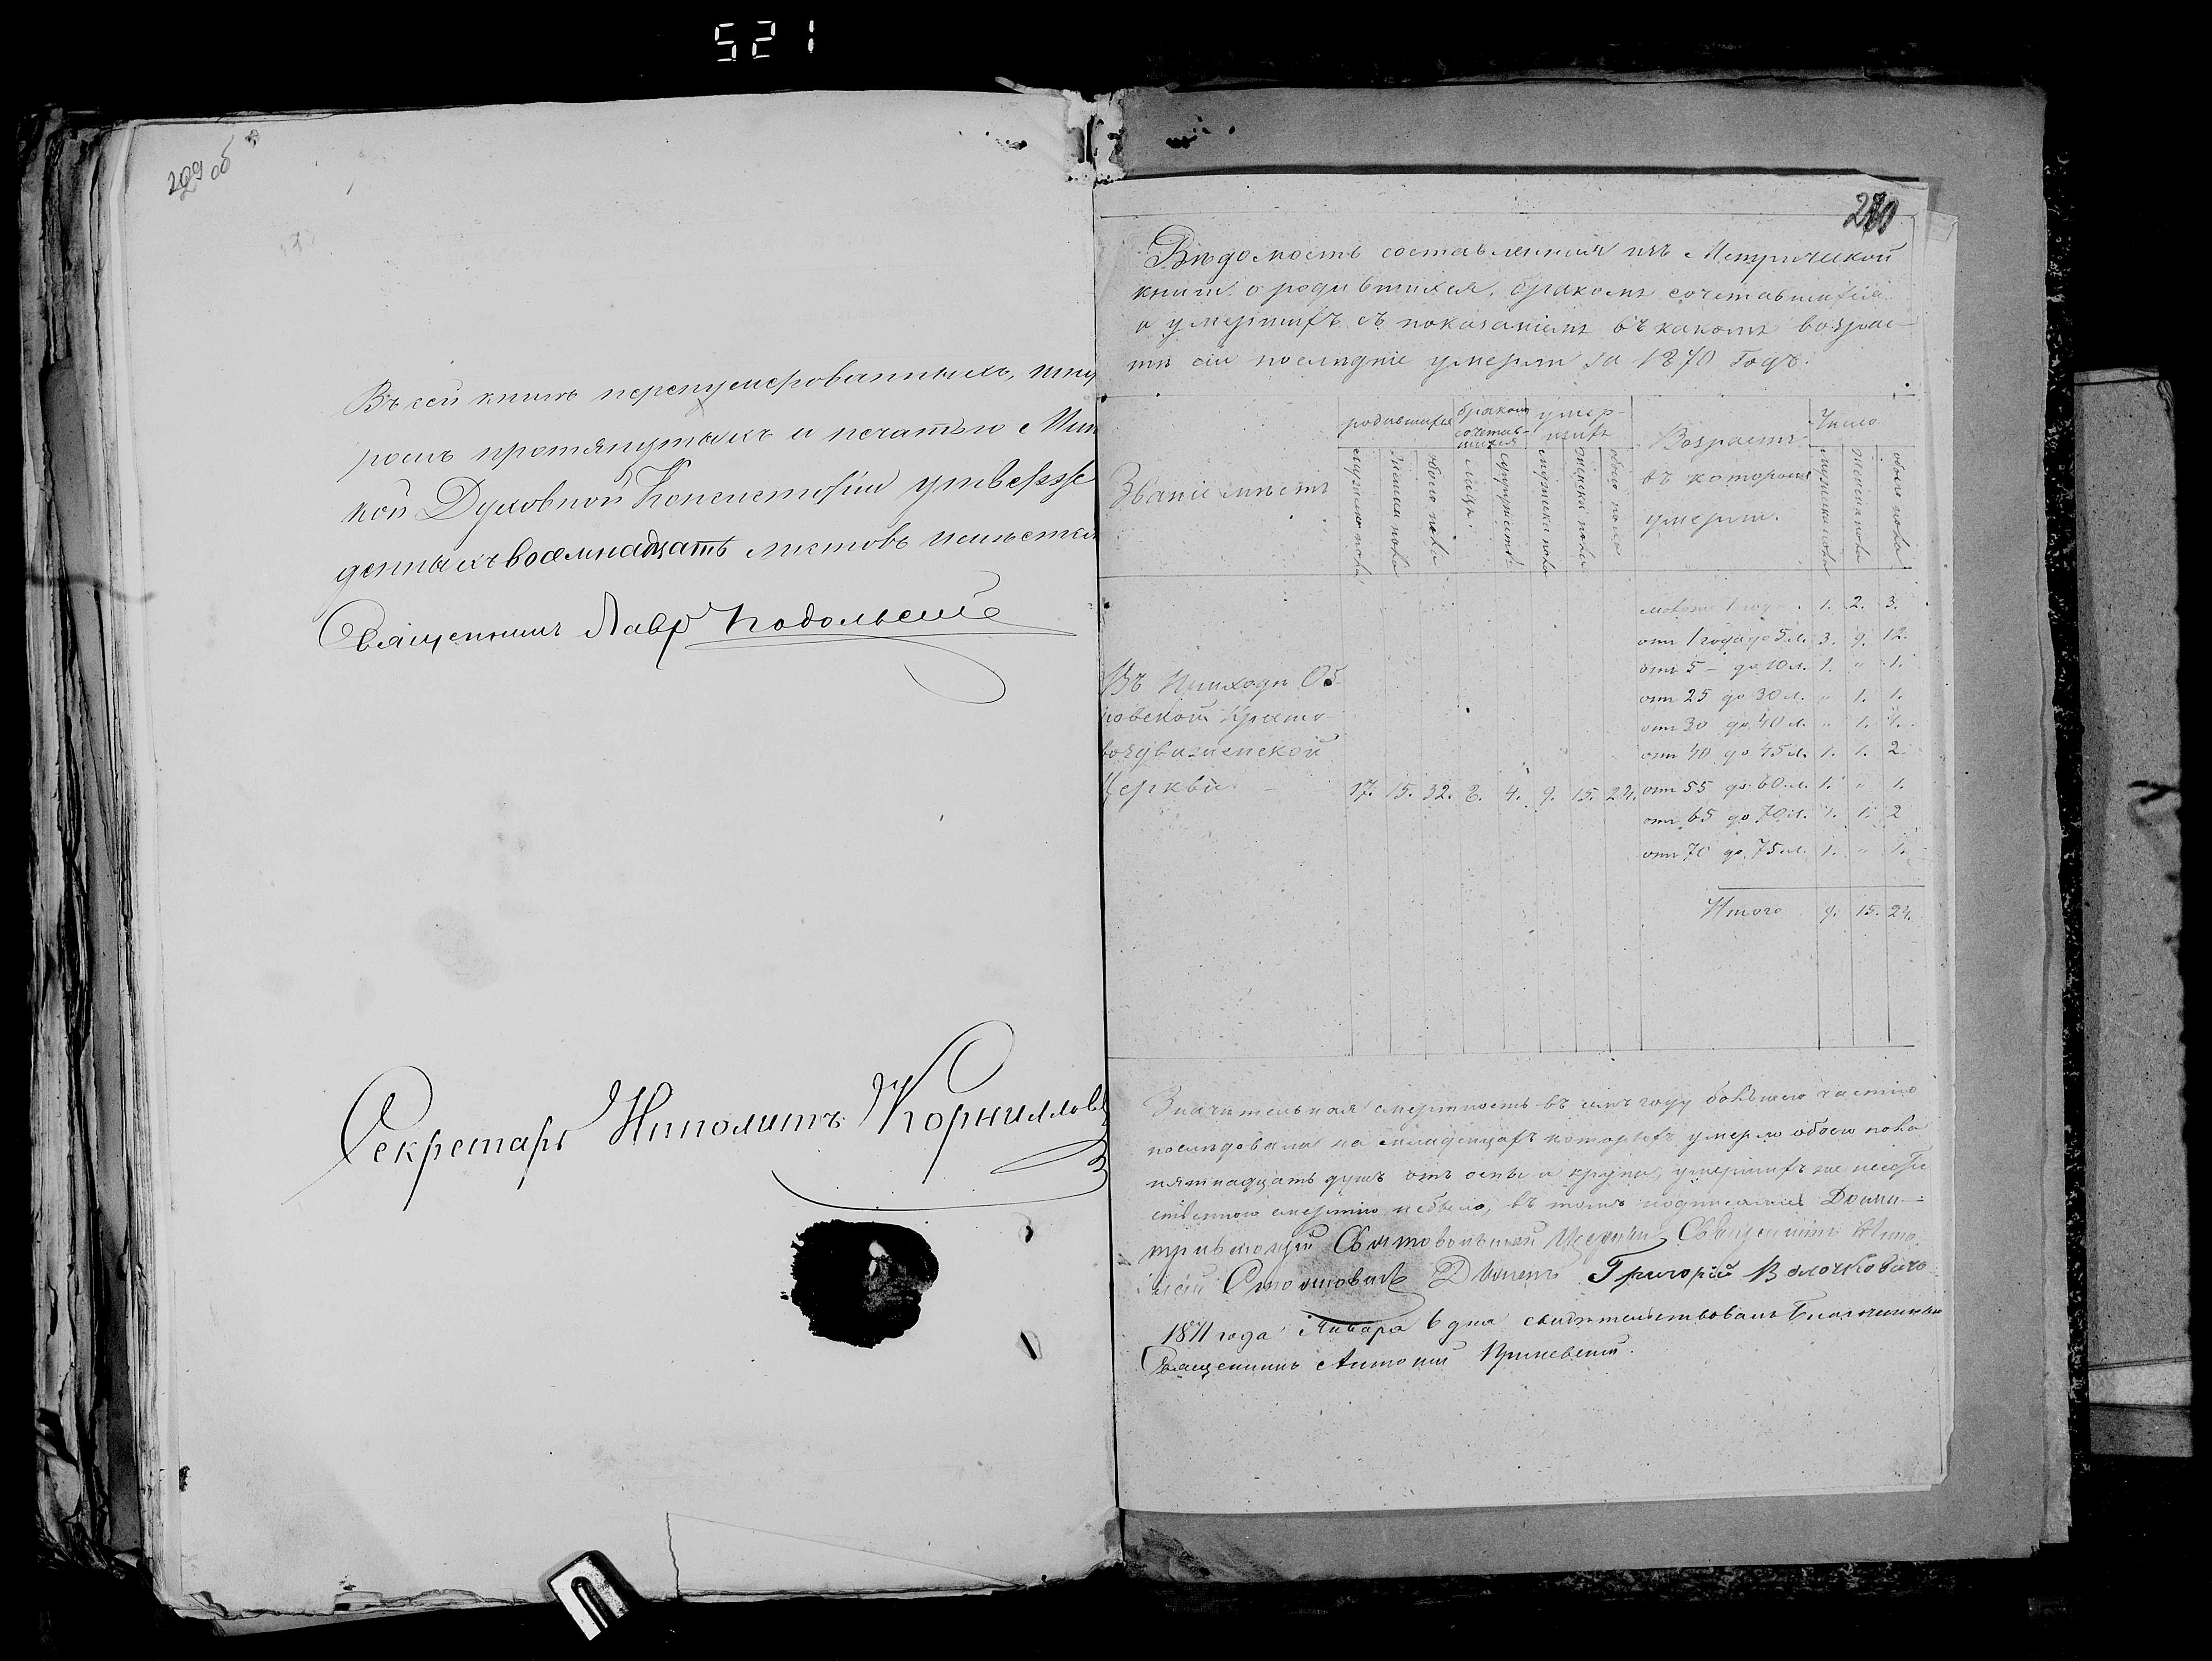 521
299 об
Въ сей книгѣ перенумерованныхъ, шну
ромъ протянутыхъ и печатью Мин
кой Духовной Консисторіи утвержде
денныхъ восемнадцать листовъ
Священникъ Лавр Подольскіе
Секретарь Иполитъ Корниллов
Вѣдомость составленная изъ Метрической
книги о родившихся, бракомъ сочетавшихся
и умершихъ съ показаніемъ въ какомъ возрас-
тѣ сіи послѣдніе умерли за 1870 Годъ.
Званіе мѣстъ
родившихся
бракомъ сочетав-шихся
умер-шихъ
Возрастъ въ которомъ умерли.
Число
мужеска пола
женска пола
обоего пола
лицъ.
супружествъ.
мужеска пола
женска пола
обоего пола
мужеска пола
женска пола
обоего пола
менѣе 1 года. 1. 2. 3.
отъ 1 года до 5 л. 3. 9. 12.
отъ 5 – до 10 л. 1. " 1.
отъ 25 до 30 л. " 1. 1.
отъ 30 до 40 л. " 1. 1.
отъ 40 до 45 л. 1. 1. 2.
отъ 55 до 60 л. 1. " 1.
отъ 65 до 70 л. 1. 1. 2
отъ 70 до 75 л. 1. " 1.
Въ Приходѣ
Кресто
воздвиженской
Церкви. 17. 15. 32. 8. 4. 9. 15. 24.
Итого 9. 15. 24.
Значительная смертность въ семъ году большею частію
послѣдовала на младенцахъ которыхъ умерло обоего пола
пятнадцать душъ отъ оспы и крупа, умершихъ же неесте
ственною смертію небыло, въ томъ подписались
Церкви Священникъ
Григорій
1871 года Января 6 дня свидѣтельствовалъ Благочинный
Священникъ Антоній